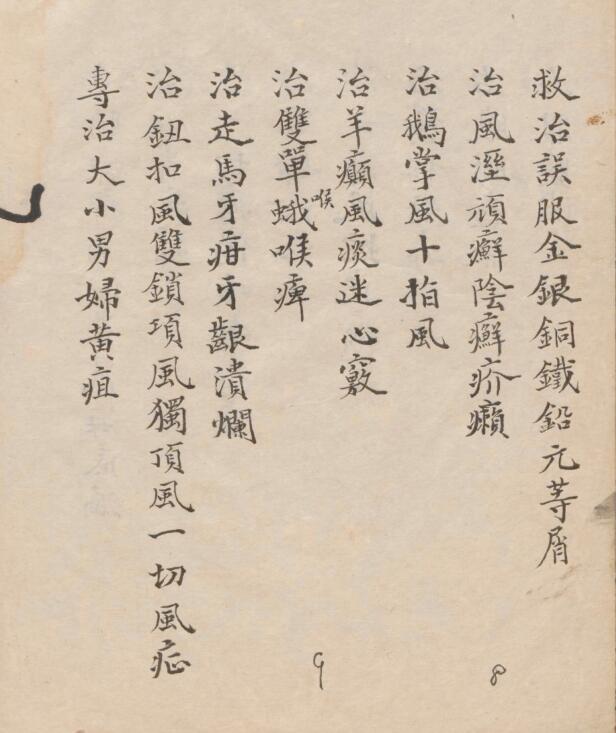 救治誤服金銀銅鐵鉛元等屑
治風溼頑癬陰癬疥癩
治鵝掌風十指風
治羊癲風痰迷心竅
治雙單蛾喉喉痺
治走馬牙疳牙齦潰爛
治鈕扣風雙鎖項風獨頂風一切風症
專治大小男婦黃疸
8
9